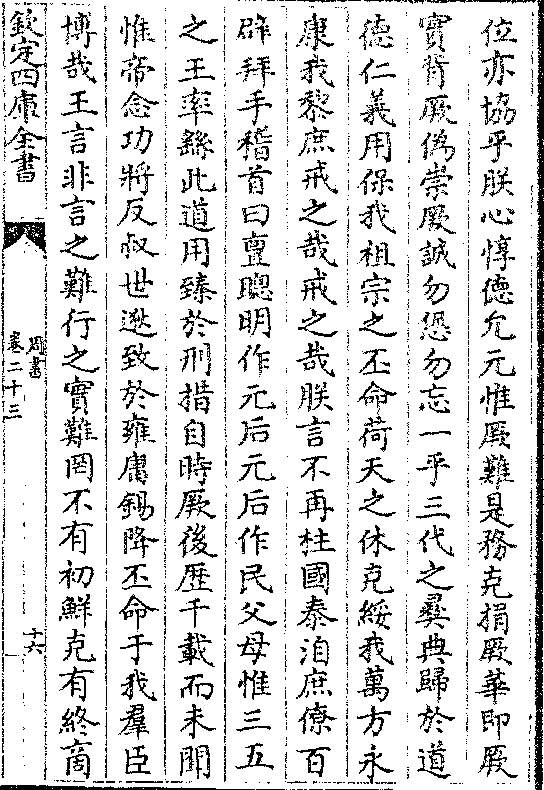 位亦協乎朕心惇德允元惟厥難是務克捐厥華即厥
實背厥偽崇厥誠勿愆勿忘一乎三代之彛典歸於道
德仁義用保我祖宗之丕命荷天之休克綏我萬方永
康我黎庶戒之哉戒之哉朕言不再柱國泰洎庶僚百
辟拜手稽首曰亶聰明作元后元后作民父母惟三五
之王率繇此道用臻於刑措自時厥後歴千載而未聞
惟帝念功將反叔世逖致於雍庸錫降丕命于我羣臣
博哉王言非言之難行之實難罔不有初鮮克有終商
欽定四庫全書
周書
卷二十三
十六